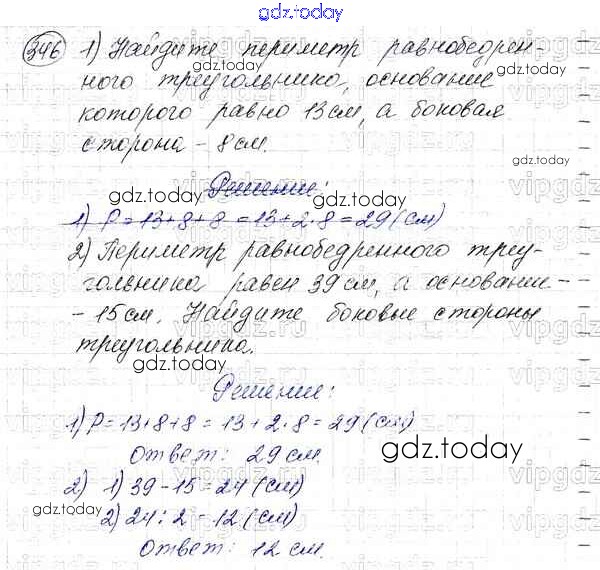 gdz.today
346 1) Найдите периметр равнобедрен-
ного треугольника, основание
которого равно 13 см, а боковая
сторона - 8 см.
Решение:
gdz.today gdz.today
1) P = 13+8+8 = 13+2·8 = 29 (см)
2) Периметр равнобедренного треу-
гольника равен 39 см, а основание -
- 15 см. Найдите боковые стороны
треугольника.
gdz.today
Решение:
1) P = 13+8+8 = 13+2·8 = 29 (см)
Ответ: 29 см.
gdz.today
2) 1) 39-15=24 (см)
2) 24:2=12 (см)
gdz.today
Ответ: 12 см.
gdz.today